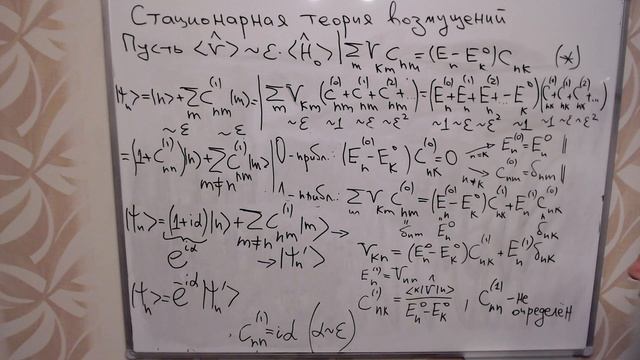 Стационарная теория возмущений
Пусть <V̂> ~ ε·<Ĥ₀> | ∑ₘ Vₖₘ Cₙₘ = (Eₙ − Eₖ⁰) Cₙₖ (*)
|ψₙ> = |n> + ∑ₘ Cₙₘ⁽¹⁾ |m> = | ∑ₘ Vₖₘ (Cₙₘ⁽⁰⁾ + Cₙₘ⁽¹⁾ + Cₙₘ⁽²⁾ + ...) = (Eₙ⁽⁰⁾ + Eₙ⁽¹⁾ + Eₙ⁽²⁾ + ... − Eₖ⁰)(Cₙₖ⁽⁰⁾ + Cₙₖ⁽¹⁾ + Cₙₖ⁽²⁾ + ...)
~ε ~ε ~ε ~1 ~ε ~ε² ~1 ~ε ~ε² ~1 ~1 ~ε ~ε²
= (1 + Cₙₙ⁽¹⁾)|n> + ∑ₘ≠ₙ Cₙₘ⁽¹⁾ |m> | 0-прибл.: (Eₙ⁽⁰⁾ − Eₖ⁰) Cₙₖ⁽⁰⁾ = 0 n=k Eₙ⁽⁰⁾ = Eₙ⁰ ||
n≠k Cₙₘ⁽⁰⁾ = δₙₘ ||
1-прибл.: ∑ₘ Vₖₘ Cₙₘ⁽⁰⁾ = (Eₙ⁽⁰⁾ − Eₖ⁰) Cₙₖ⁽¹⁾ + Eₙ⁽¹⁾ Cₙₖ⁽⁰⁾
δₙₘ Eₙ⁰ δₙₖ
|ψₙ> = (1 + iα)|n> + ∑ₘ≠ₙ Cₙₘ⁽¹⁾ |m> →
e^{iα} → |ψₙ'>
Vₖₙ = (Eₙ⁰ − Eₖ⁰) Cₙₖ⁽¹⁾ + Eₙ⁽¹⁾ δₙₖ
Eₙ⁽¹⁾ = Vₙₙ
|ψₙ> = e^{iα} |ψₙ'>
Cₙₖ⁽¹⁾ = <k|V̂|n> / (Eₙ⁰ − Eₖ⁰), Cₙₙ⁽¹⁾ - не
определён
Cₙₙ⁽¹⁾ = iα (α ~ ε)